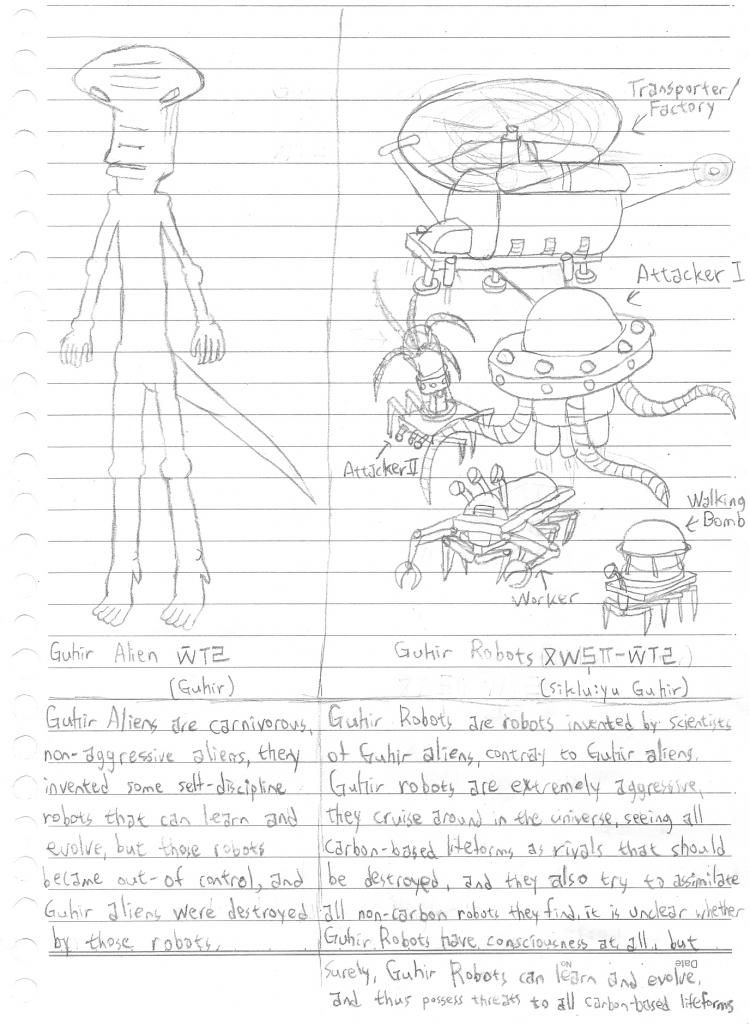 Transporter/
Factory
Attacker I
Attacker II
Walking
Bomb
Worker
Guhir Alien
(Guhir)
Guhir Robots
(siklu:yu Guhir)
Guhir Aliens are carnivorous,
non-aggressive aliens, they
invented some self-discipline
robots that can learn and
evolve, but those robots
became out-of control, and
Guhir aliens were destroyed
by those robots.
Guhir Robots are robots invented by scientists
of Guhir aliens, contray to Guhir aliens.
Guhir robots are extremely aggressive,
they cruise around in the universe, seeing all
carbon-based lifeforms as rivals that should
be destroyed, and they also try to assimilate
all non-carbon robots they find, it is unclear whether
Guhir Robots have consciousness at all, but
surely, Guhir Robots can learn and evolve,
and thus possess threats to all carbon-based lifeforms
No
Date